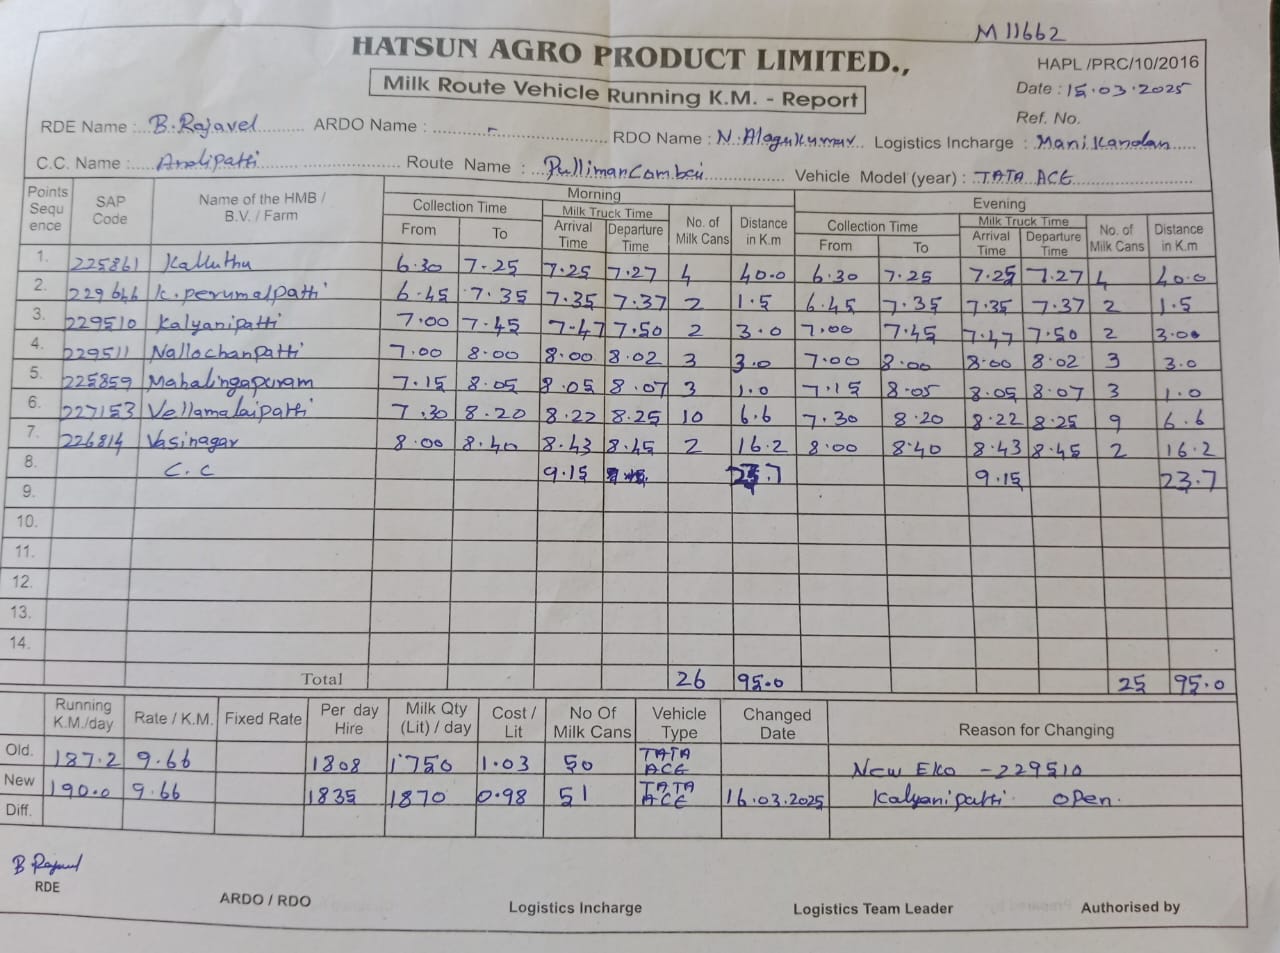 M 11662
HATSUN AGRO PRODUCT LIMITED.,
HAPL /PRC/10/2016
Milk Route Vehicle Running K.M. - Report
Date : 15.03.2025
Ref. No.
RDE Name : B.Rajavel ARDO Name : - RDO Name : N. Alagukumar Logistics Incharge : Manikandan
C.C. Name : Andipatti Route Name : Pullimancombei Vehicle Model (year) : TATA ACE
Points Sequ ence SAP Code Name of the HMB / B.V. / Farm Morning Evening
Collection Time Milk Truck Time No. of Milk Cans Distance in K.m Collection Time Milk Truck Time No. of Milk Cans Distance in K.m
From To Arrival Time Departure Time From To Arrival Time Departure Time
1. 225861 Kalluthu 6.30 7.25 7.25 7.27 4 40.0 6.30 7.25 7.25 7.27 4 40.0
2. 229646 K.perumalpatti 6.45 7.35 7.35 7.37 2 1.5 6.45 7.35 7.35 7.37 2 1.5
3. 229510 Kalyanipatti 7.00 7.45 7.47 7.50 2 3.0 7.00 7.45 7.47 7.50 2 3.00
4. 229511 Nallochanpatti 7.00 8.00 8.00 8.02 3 3.0 7.00 8.00 8.00 8.02 3 3.0
5. 225859 Mahalingapuram 7.15 8.05 8.05 8.07 3 1.0 7.15 8.05 8.05 8.07 3 1.0
6. 227153 Vellamalaipatti 7.30 8.20 8.22 8.25 10 6.6 7.30 8.20 8.22 8.25 9 6.6
7. 226814 Vasinagar 8.00 8.40 8.43 8.45 2 16.2 8.00 8.40 8.43 8.45 2 16.2
8. C.C 9.15 23.7 9.15 23.7
9.
10.
11.
12.
13.
14.
Total 26 95.0 25 95.0
Running K.M./day Rate / K.M. Fixed Rate Per day Hire Milk Qty (Lit) / day Cost / Lit No Of Milk Cans Vehicle Type Changed Date Reason for Changing
Old. 187.2 9.66 1808 1750 1.03 50 TATA ACE New EKo - 229510
New 190.0 9.66 1835 1870 0.98 51 TATA ACE 16.03.2025 Kalyanipatti open.
Diff.
B Rajavel
RDE
ARDO / RDO
Logistics Incharge
Logistics Team Leader
Authorised by